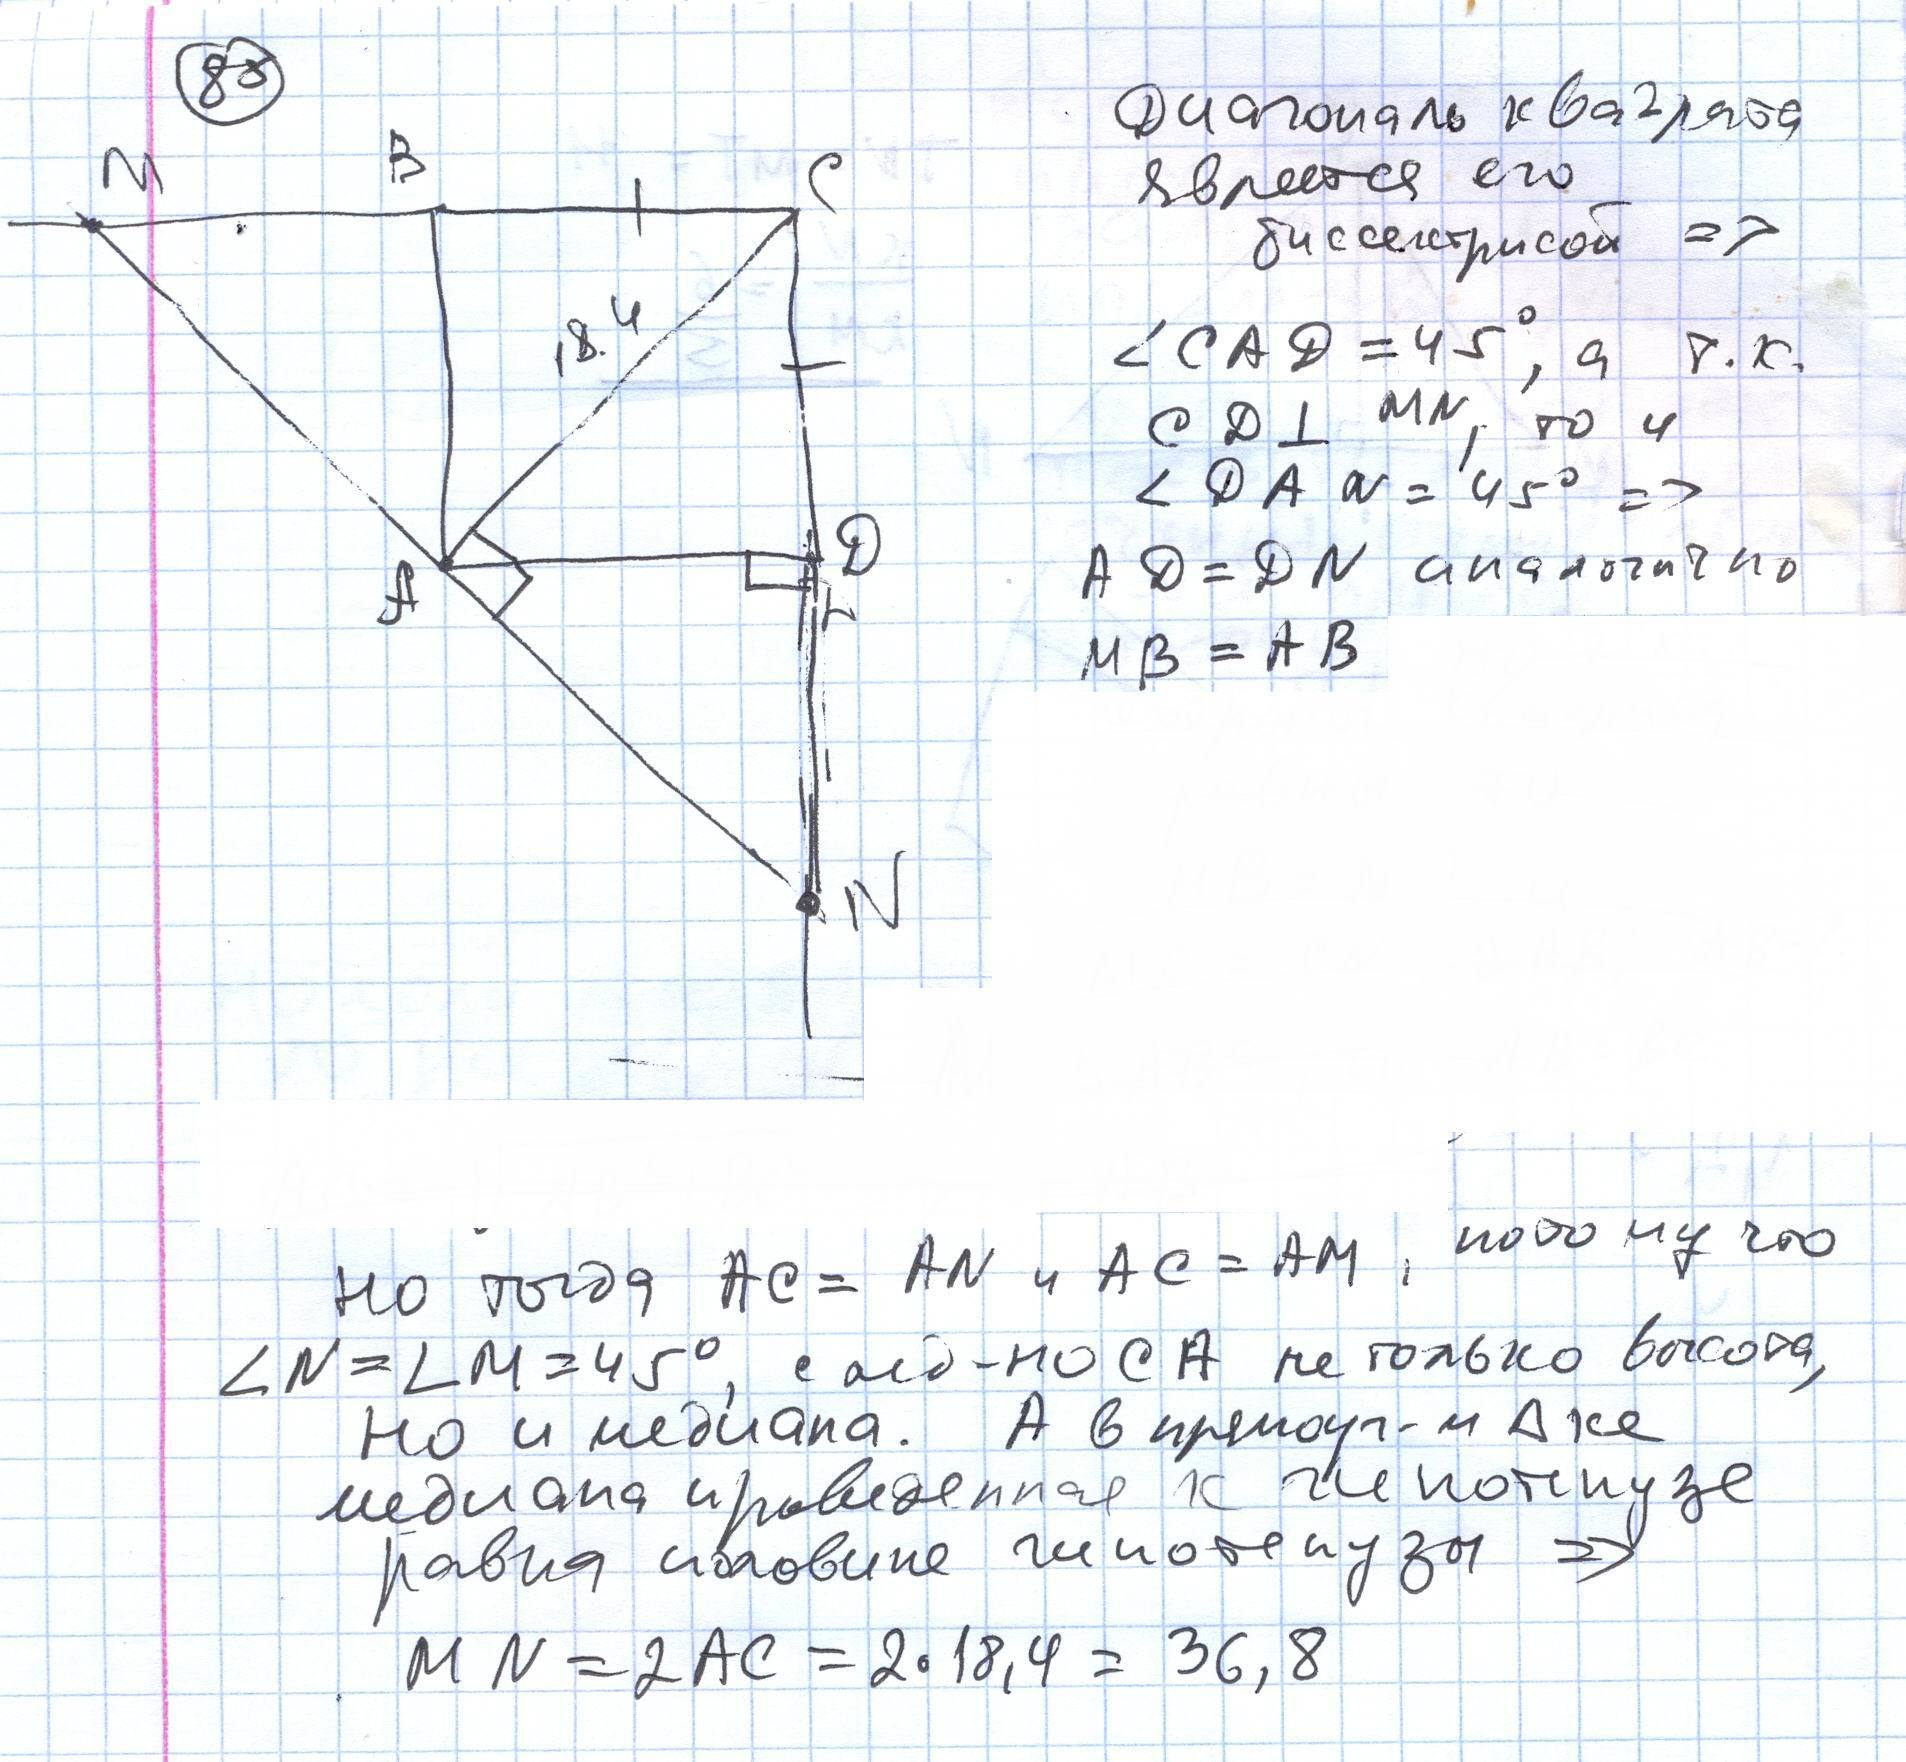 80
M B C
18.4
A D
N
Диагональ квадрата
является его
биссектрисой =>
∠CAD = 45°, а т.к.
CD⊥ MN, то и
∠DAN = 45° =>
AD = DN аналогично
MB = AB
но тогда AC = AN и AC = AM, потому что
∠N = ∠M = 45°, след-но CA не только высота,
но и медиана. А в прямоуг-м Δ-ке
медиана проведенная к гипотенузе
равна половине гипотенузы =>
MN = 2AC = 2·18,4 = 36,8